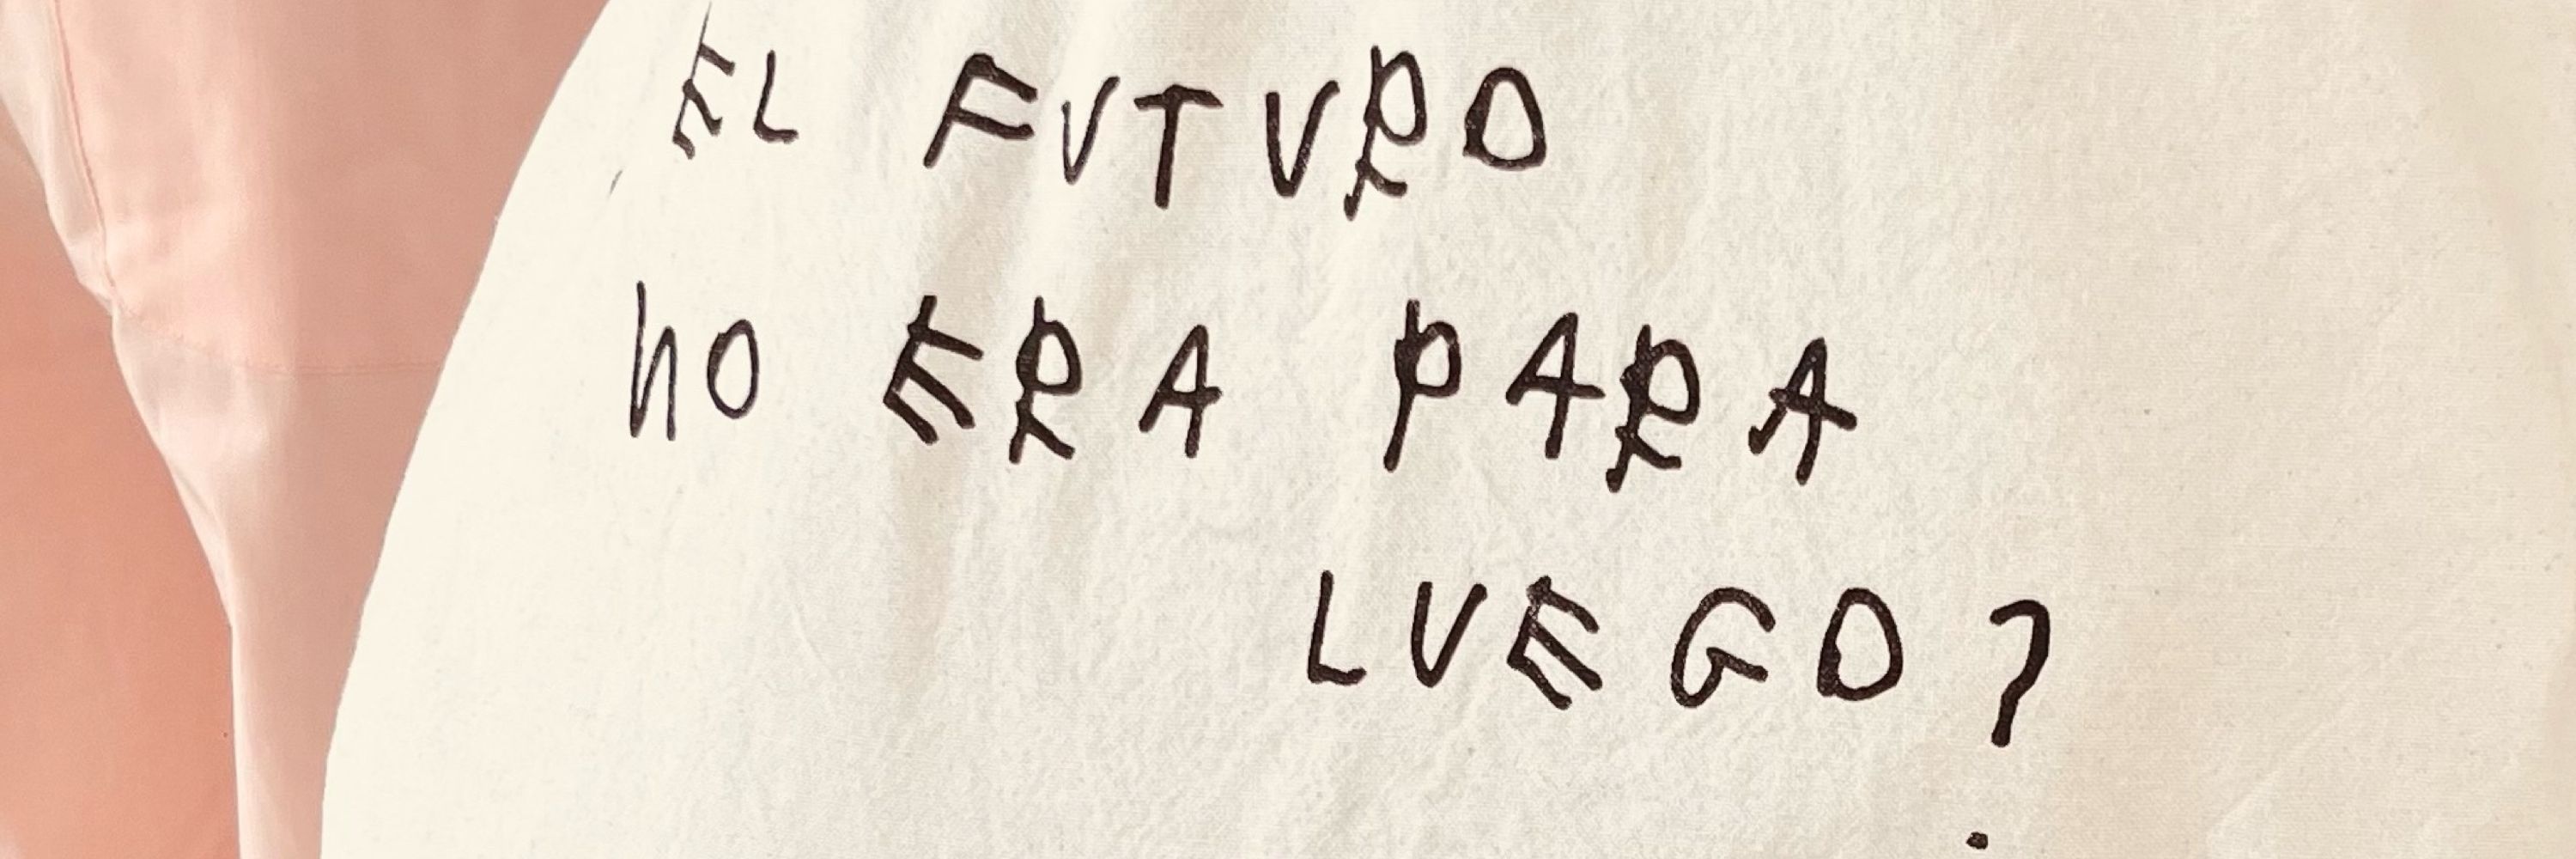 EL FUTURO
NO ERA PARA
LUEGO?